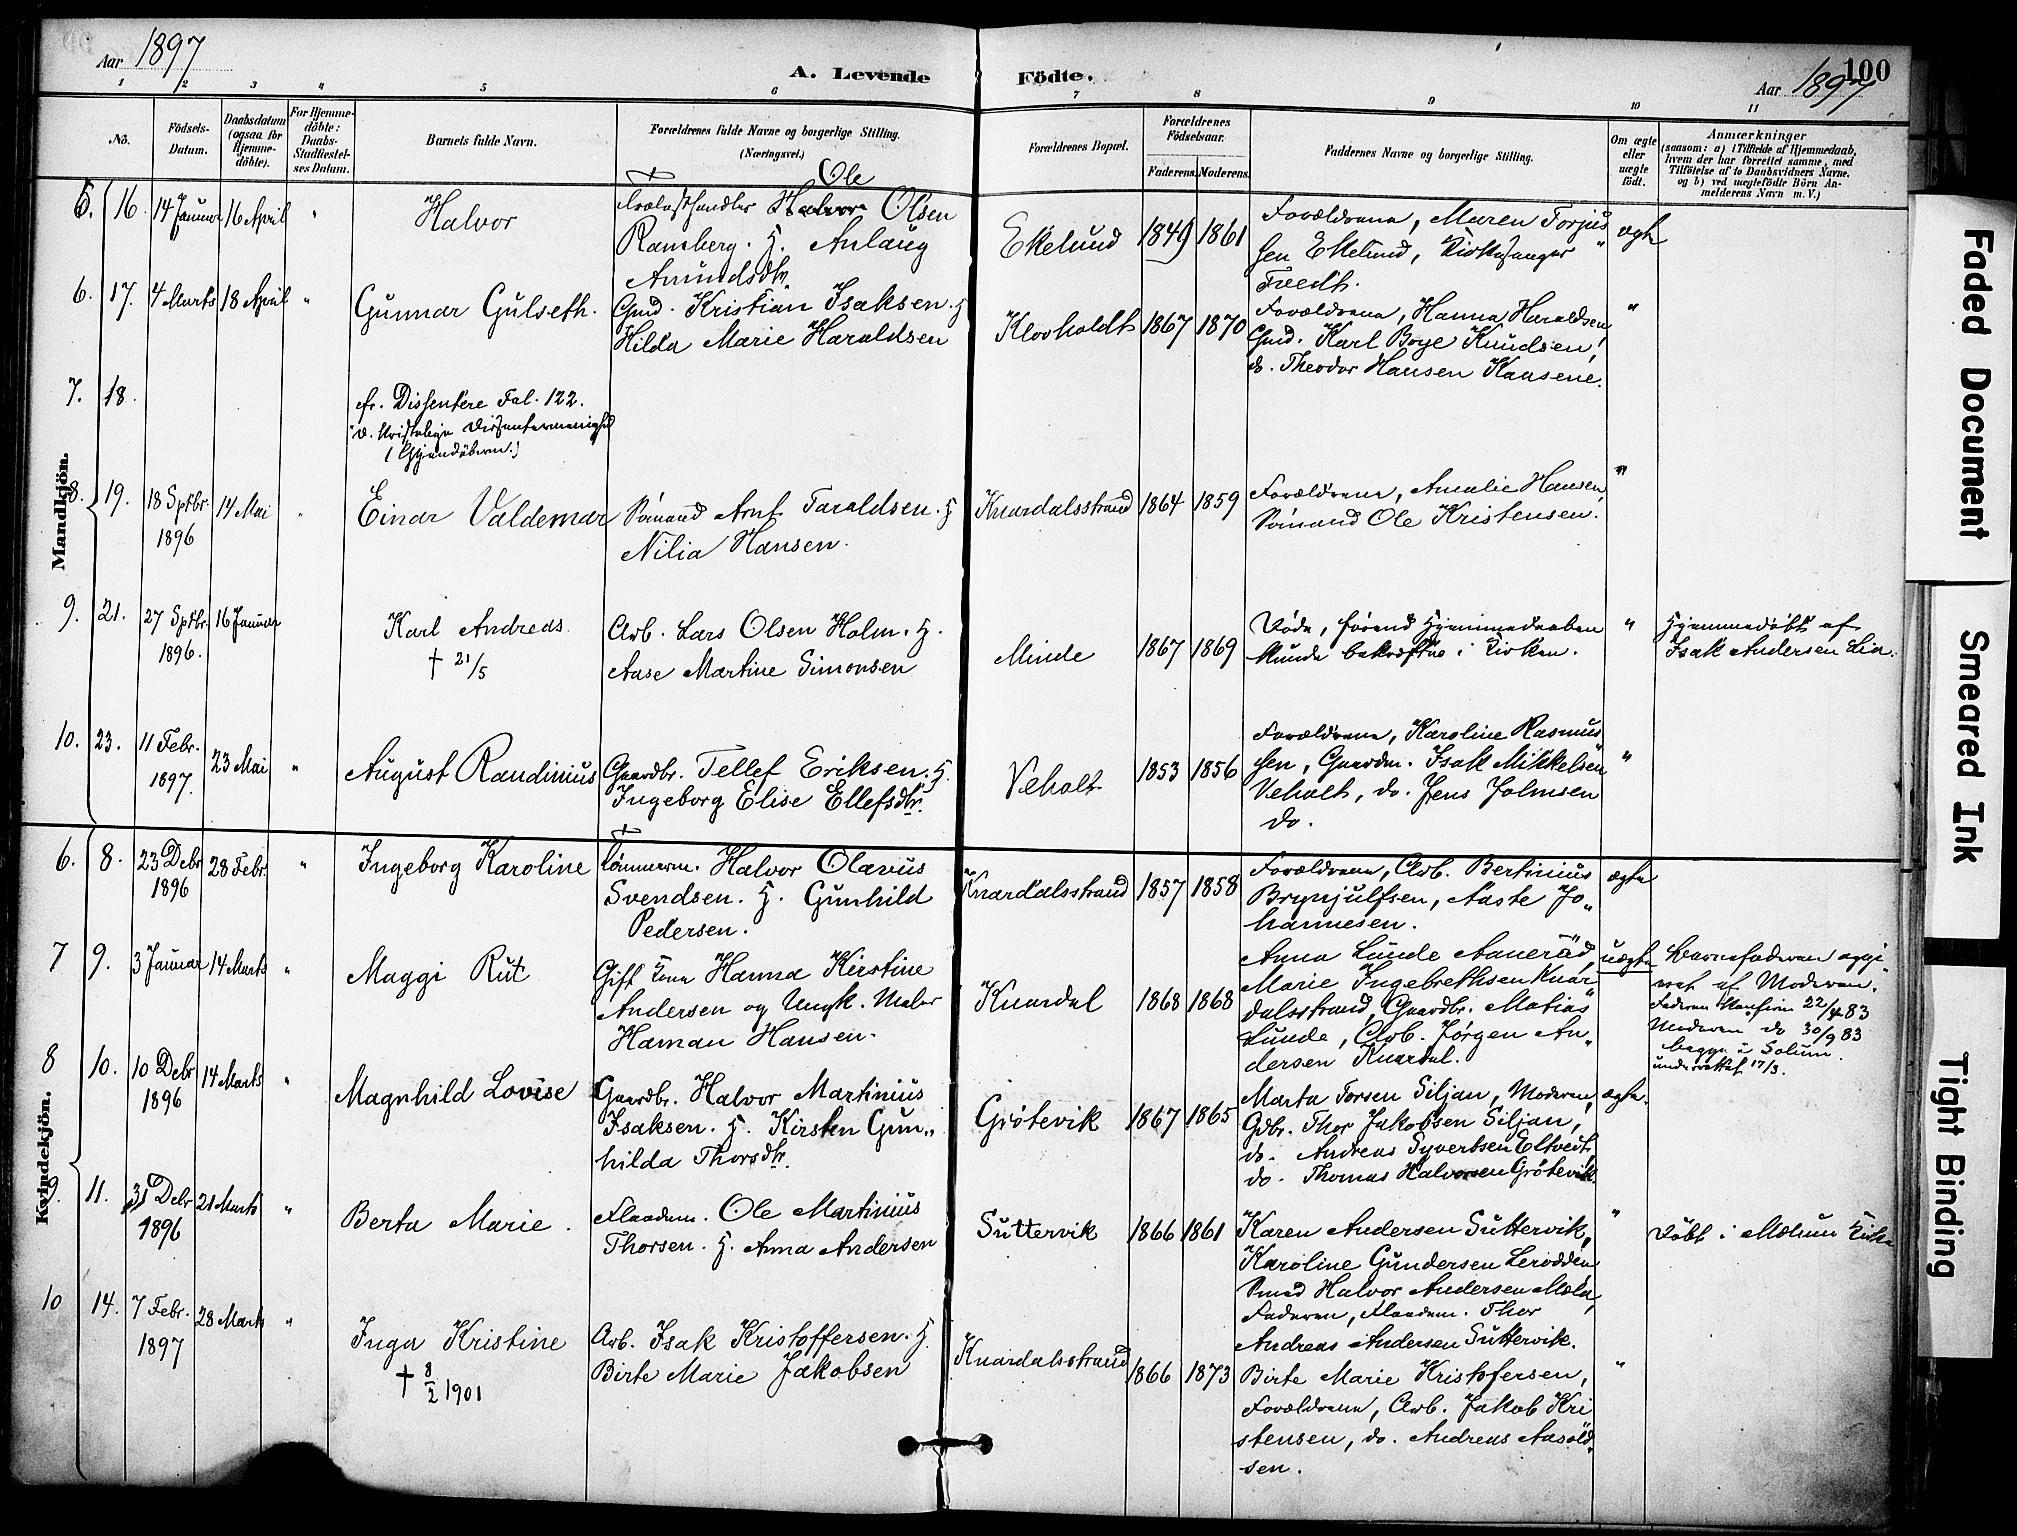 Aar 1897
A. Levende
Födte.
Aar 1897
100
1 2 3 4 5 6 7 8 9 10 11
No.
Födsels-
Datum.
Daabsdatum
(ogsaa for
Hjemme-
döbte).
For Hjemme-
döbte:
Daabs-
Stadfæstel-
ses Datum.
Barnets fulde Navn.
Forældrenes fulde Navne og borgerlige Stilling.
(Næringsvei.)
Forældrenes Bopæl.
Forældrenes
Födselsaar.
Faderens. Moderens.
Faddernes Navne og borgerlige Stilling.
Om ægte
eller
uægte
födt.
Anmærkninger
(saasom: a) i Tilfælde af Hjemmedaab,
hvem der har forrettet samme, med
Tilföielse af to Daabsvidners Navne,
og b) ved uægtefödte Börn An-
melderens Navn m. V.)
Mandkjön.
5. 16. 14 Januar 16 April " Halvor
Trælasthandler Halvor Ole Olsen
Ramberg. H. Anlaug
Amundsdtr.
Ekelund 1849 1861
Forældrene, Maren Torjus"
sen Ekelund, Kirkesanger
Tvedt.
ægte
6. 17. 4 Marts 18 April " Gunnar Gulseth.
Gmd. Kristian Isaksen. H
Hilda Marie Haraldsen
Klovholdt 1867 1870
Forældrene, Hanna Haraldsen,
Gmd. Karl Boye Knudsen,
do. Theodor Hansen Kaasene.
"
7. 18.
cfr. Dissentere Fol. 122.
d. kristelige Dissentermenighed
(Gjendöbere.)
8. 19. 18 Sptbr. 1896 14 Mai " Einar Valdemar
Sömand Arnt Taraldsen. H
Nilia Hansen.
Knardalsstrand 1864 1859
Forældrene, Amalie Hansen,
Sömand Ole Kristensen.
"
9. 21. 27 Sptbr. 1896. 16 Januar
Karl Andreas
† 21/5
Arb. Lars Olsen Holm. H.
Aase Martine Simonsen
Minde 1867 1869
Döde, förend Hjemmedaaben
kunde bekræftes i Kirken.
"
Hjemmedöbt af
Isak Andersen Lia.
10. 23. 11 Febr. 1897. 23 Mai " August Randinius
Gaardbr. Tellef Eriksen. H.
Ingeborg Elise Ellefsdtr.
Veholt 1853 1856
Forældrene, Karoline Rasmus"
sen, Gaardm. Isak Mikkelsen
Veholt, do. Jens Johnsen
do.
"
Kvindekjön.
6. 8. 23 Debr 1896 28 Febr. " Ingeborg Karoline
Tömmerm. Halvor Olavus
Svendsen. H. Gunhild
Pedersen.
Knardalsstrand 1857 1858
Forældrene, Arb. Bertinius
Brynjulfsen, Aaste Jo"
hannesen.
ægte
7 9. 3 Januar 14 Marts " Maggi Rut
Gift Kone Hanna Kirstine
Andersen og Ungk. Maler
Haman Hansen.
Knardal 1868 1868
Anna Lunde Aaneröd,
Marie Ingebrethsen Knar"
dalsstrand, Gaardbr. Matias
Lunde, Arb. Jørgen An"
dersen Knardal.
uægte
Barnefaderen opgi"
vet af Moderen.
Faderen konfirm 22/4 83
Moderen do 30/9 83
begge i Solum.
underrettet 17/3.
8 10. 10 Debr 1896 14 Marts " Magnhild Lovise
Gaardbr. Halvor Martinius
Isaksen. H. Kirsten Gun"
hilda Thorsdtr.
Grötevik 1867 1865
Marta Torsen Siljan, Moderen,
Gdbr. Thor Jakobsen Siljan,
do. Andreas Syvertsen Eltvedt,
do. Thomas Halvorsen Grötevik.
ægte.
9. 11. 31 Debr 1896 21 Marts " Berta Marie.
Flaadem. Ole Martinius
Thorsen. H. Anna Andersen
Suttervik 1866 1861
Karen Andersen Suttervik,
Karoline Gundersen Lerodden
Smed Halvor Andersen Mæla,
Faderen, Flaadem. Thor
Andreas Andersen Suttervik.
"
Döbt i Mælum Kirke
10 14. 7 Febr. 1897 28 Marts "
Inga Kristine
† 8/2 1901
Arb. Isak Kristoffersen. H
Birte Marie Jakobsen
Knardalsstrand 1866 1873
Birte Marie Kristofersen,
Forældrene, Arb. Jakob Kri
stensen, do. Andreas Aasold"
sen.
"
Faded Document
Smeared Ink
Tight Binding